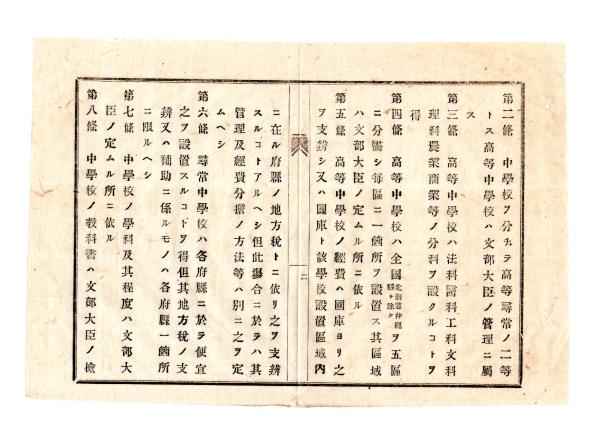 第二條 中學校ヲ分チテ高等尋常ノ二等
トス高等中學校ハ文部大臣ノ管理ニ屬
ス
第三條 高等中學校ハ法科醫科工科文科
理科農業商業等ノ分科ヲ設クルコトヲ
得
第四條 高等中學校ハ全國北海道沖繩縣ヲ除クヲ五區
ニ分畫シ每區ニ一箇所ヲ設置ス其區域
ハ文部大臣ノ定ムル所ニ依ル
第五條 高等中學校ノ經費ハ國庫ヨリ之
ヲ支辨シ又ハ國庫ト該學校設置區域內
二
ニ在ル府縣ノ地方稅トニ依リ之ヲ支辨
スルコトアルヘシ但此塲合ニ於テハ其
管理及經費分擔ノ方法等ハ別ニ之ヲ定
ムヘシ
第六條 尋常中學校ハ各府縣ニ於テ便宜
之ヲ設置スルコトヲ得但其地方稅ノ支
辨又ハ補助ニ係ルモノハ各府縣一箇所
ニ限ルヘシ
第七條 中學校ノ學科及其程度ハ文部大
臣ノ定ムル所ニ依ル
第八條 中學校ノ敎科書ハ文部大臣ノ檢